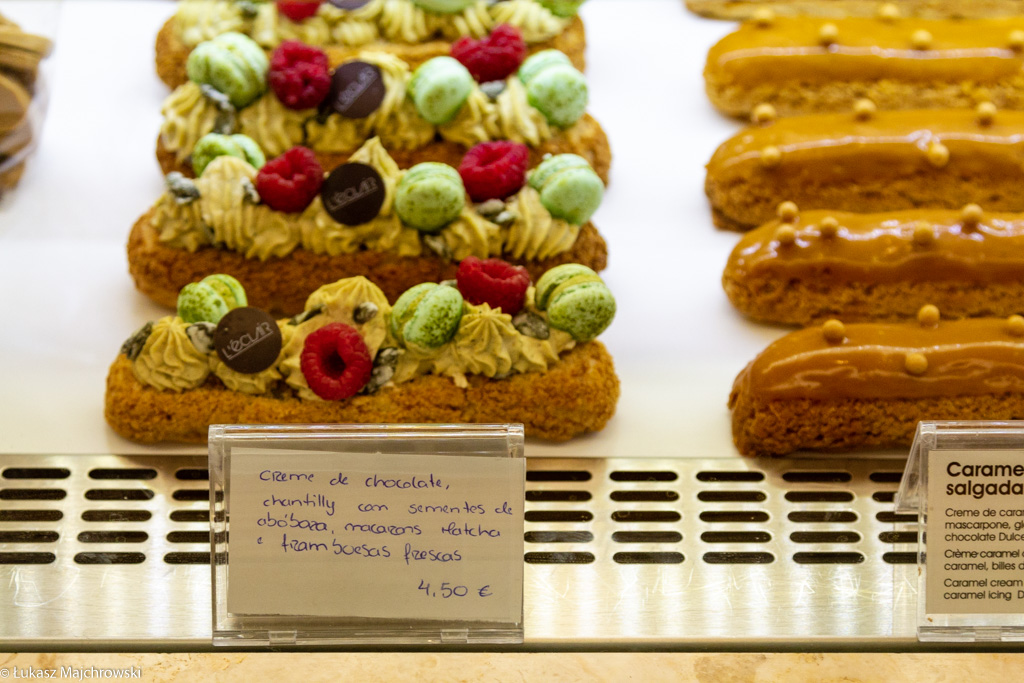 L'ÉCLAIR
L'ÉCLAIR
Creme de chocolate,
chantilly com sementes de
abóbora, macarons Matcha
e framboesas frescas
4,50 €
Carame
salgada
Creme de cara
mascarpone, gl
chocolate Dulce
Crème caramel
caramel, billes d
Caramel cream
caramel icing D
© Łukasz Majchrowski